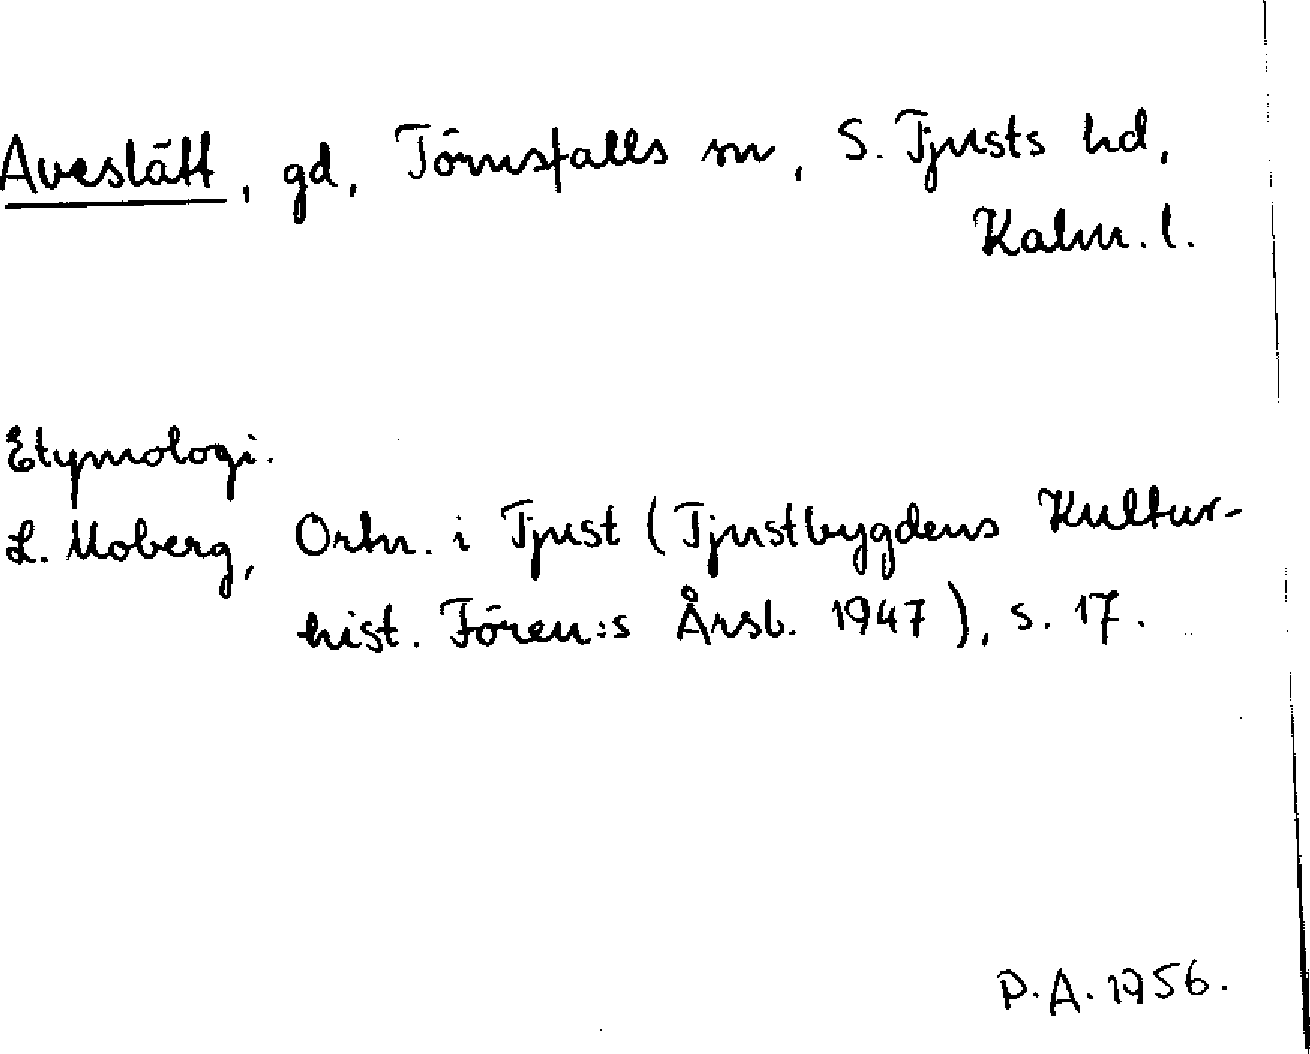 Aveslätt, gd, Törnsfalls sn, S. Tjusts hd,
Kalm. l.
Etymologi.
L. Moberg, Ortn. i Tjust (Tjustbygdens Kultur-
hist. Fören:s Årsb. 1947), s. 17.
P.A. 1956.